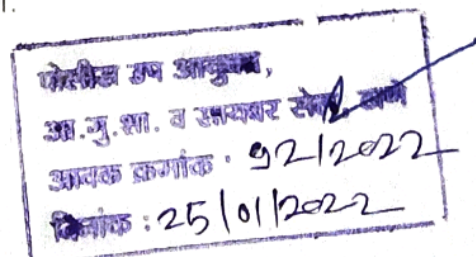 पोलीस उप आयुक्त,
आ.गु.शा. व सायबर सेल, ठाणे
आवक क्रमांक : 92/2022
दिनांक : 25/01/2022